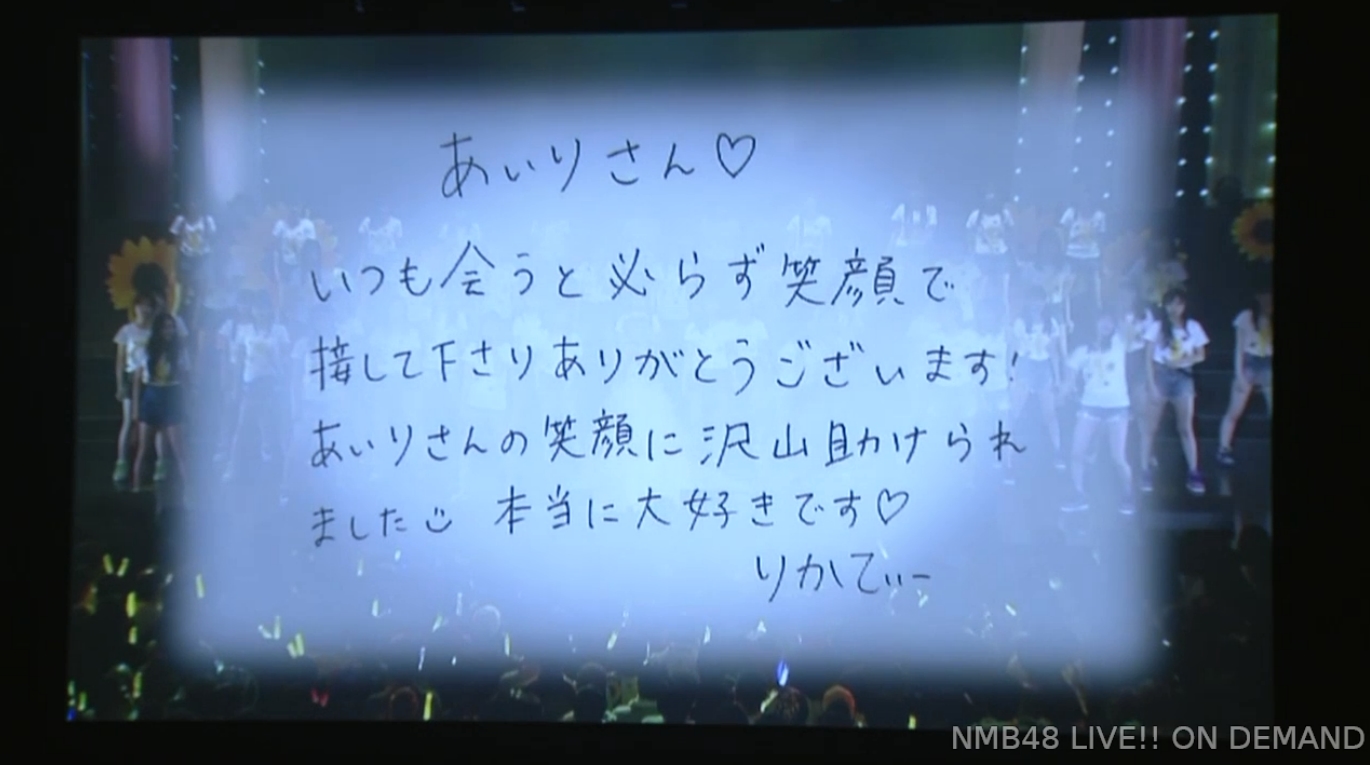 あいりさん♡
いつも会うと必らず笑顔で
接して下さりありがとうございます!
あいりさんの笑顔に沢山助けられ
ました 本当に大好きです♡
りかてぃー
NMB48 LIVE!! ON DEMAND